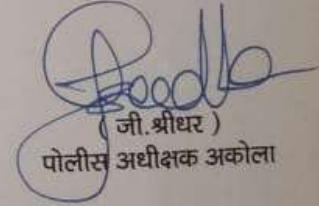 ( जी.श्रीधर )
पोलीस अधीक्षक अकोला